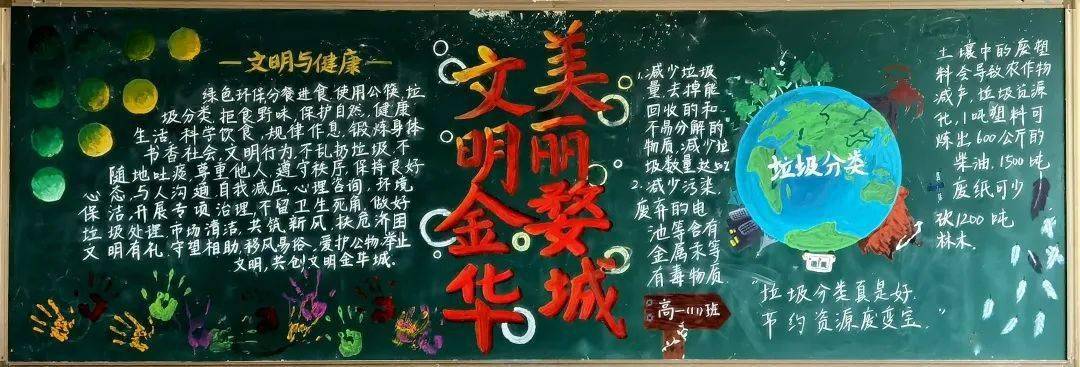 一文明与健康一
绿色环保,分餐进食,使用公筷,垃
圾分类,拒食野味,保护自然,健康
生活,科学饮食,规律作息,锻炼身体
书香社会,文明行为,不乱扔垃圾,不
随地吐痰,尊重他人,遵守秩序,保持良好
心态,与人沟通,自我减压,心理咨询,环境
保洁,开展专项治理,不留卫生死角,做好
垃圾处理,市场清洁,共筑新风,扶危济困
文明有礼,守望相助,移风易俗,爱护公物,举止
文明,共创文明金华城.
文明金华
美丽婺城
1.减少垃圾
量,去掉能
回收的和
不易分解的
物质,减少垃
圾数量达50%
2.减少污染.
废弃的电
池等含有
金属汞等
有毒物质.
高一(11)班
垃圾分类
土壤中的废塑
料会导致农作物
减产,垃圾资源
化,1吨塑料可
炼出600公斤的
柴油,1500吨
废纸可少
砍1200吨
林木.
"垃圾分类真是好.
节约资源废变宝."